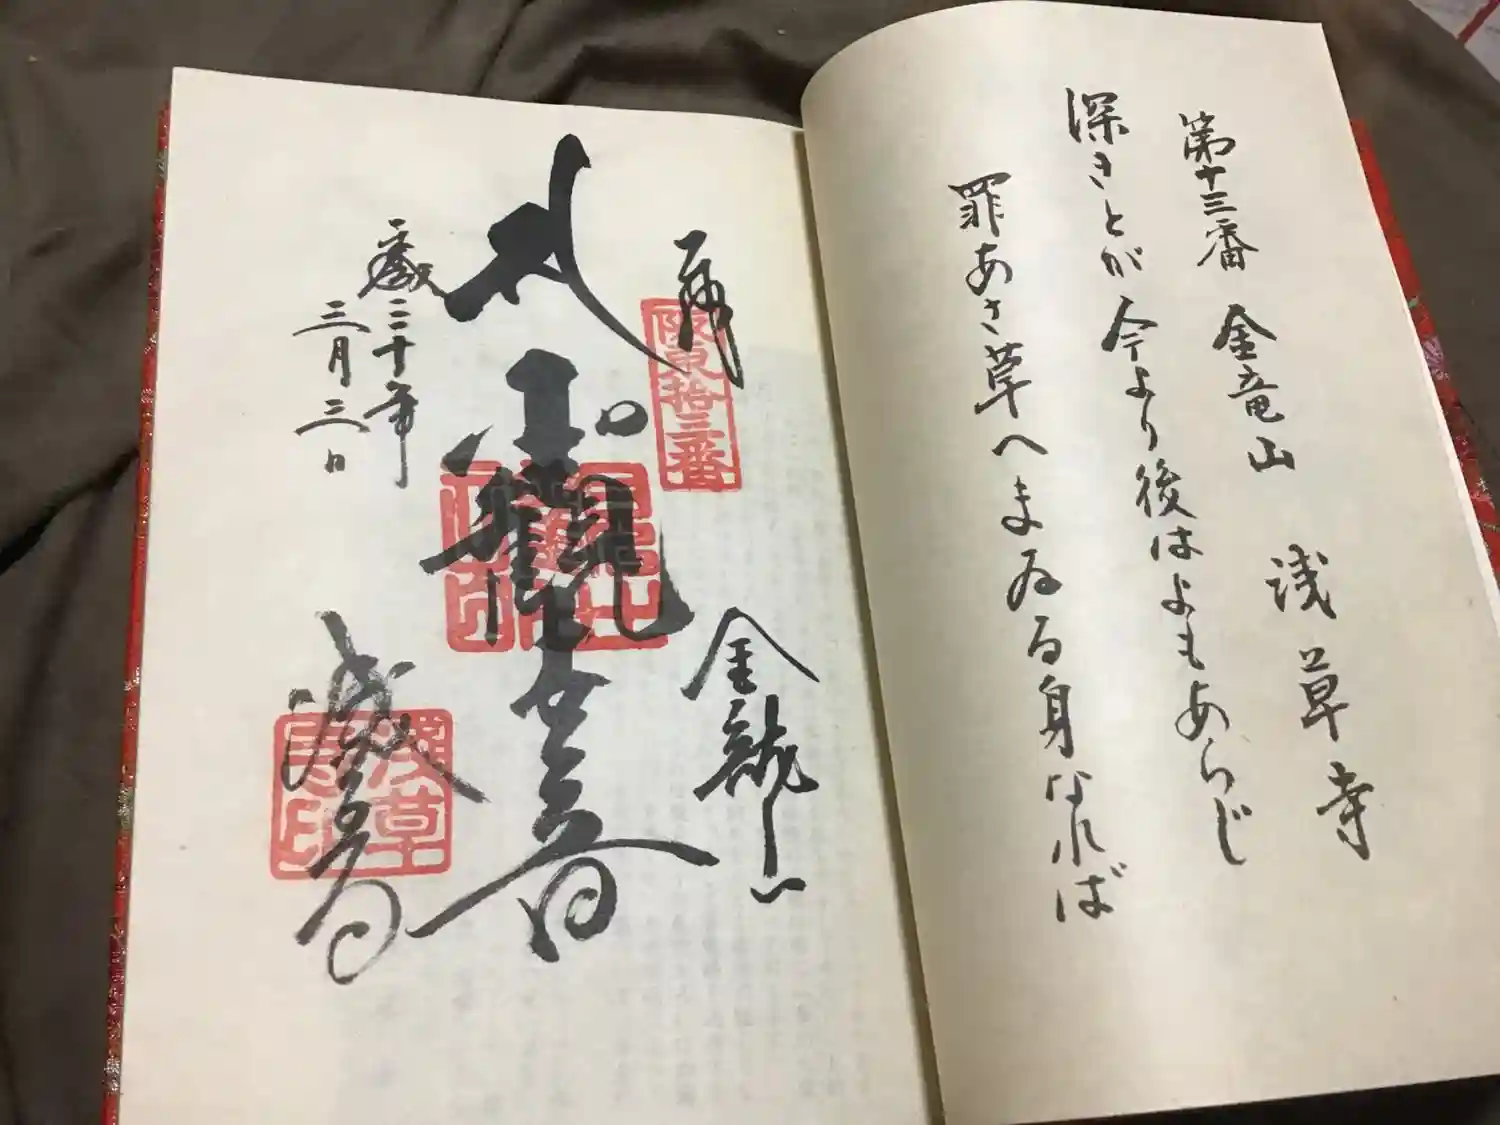 第十三番 金竜山 浅草寺
深きとが今より後はよもあらじ
罪あさ草へまゐる身なれば
奉拝
阪東拾三番
金龍山
聖観世音
三月三日
浅草寺
淺草寺印